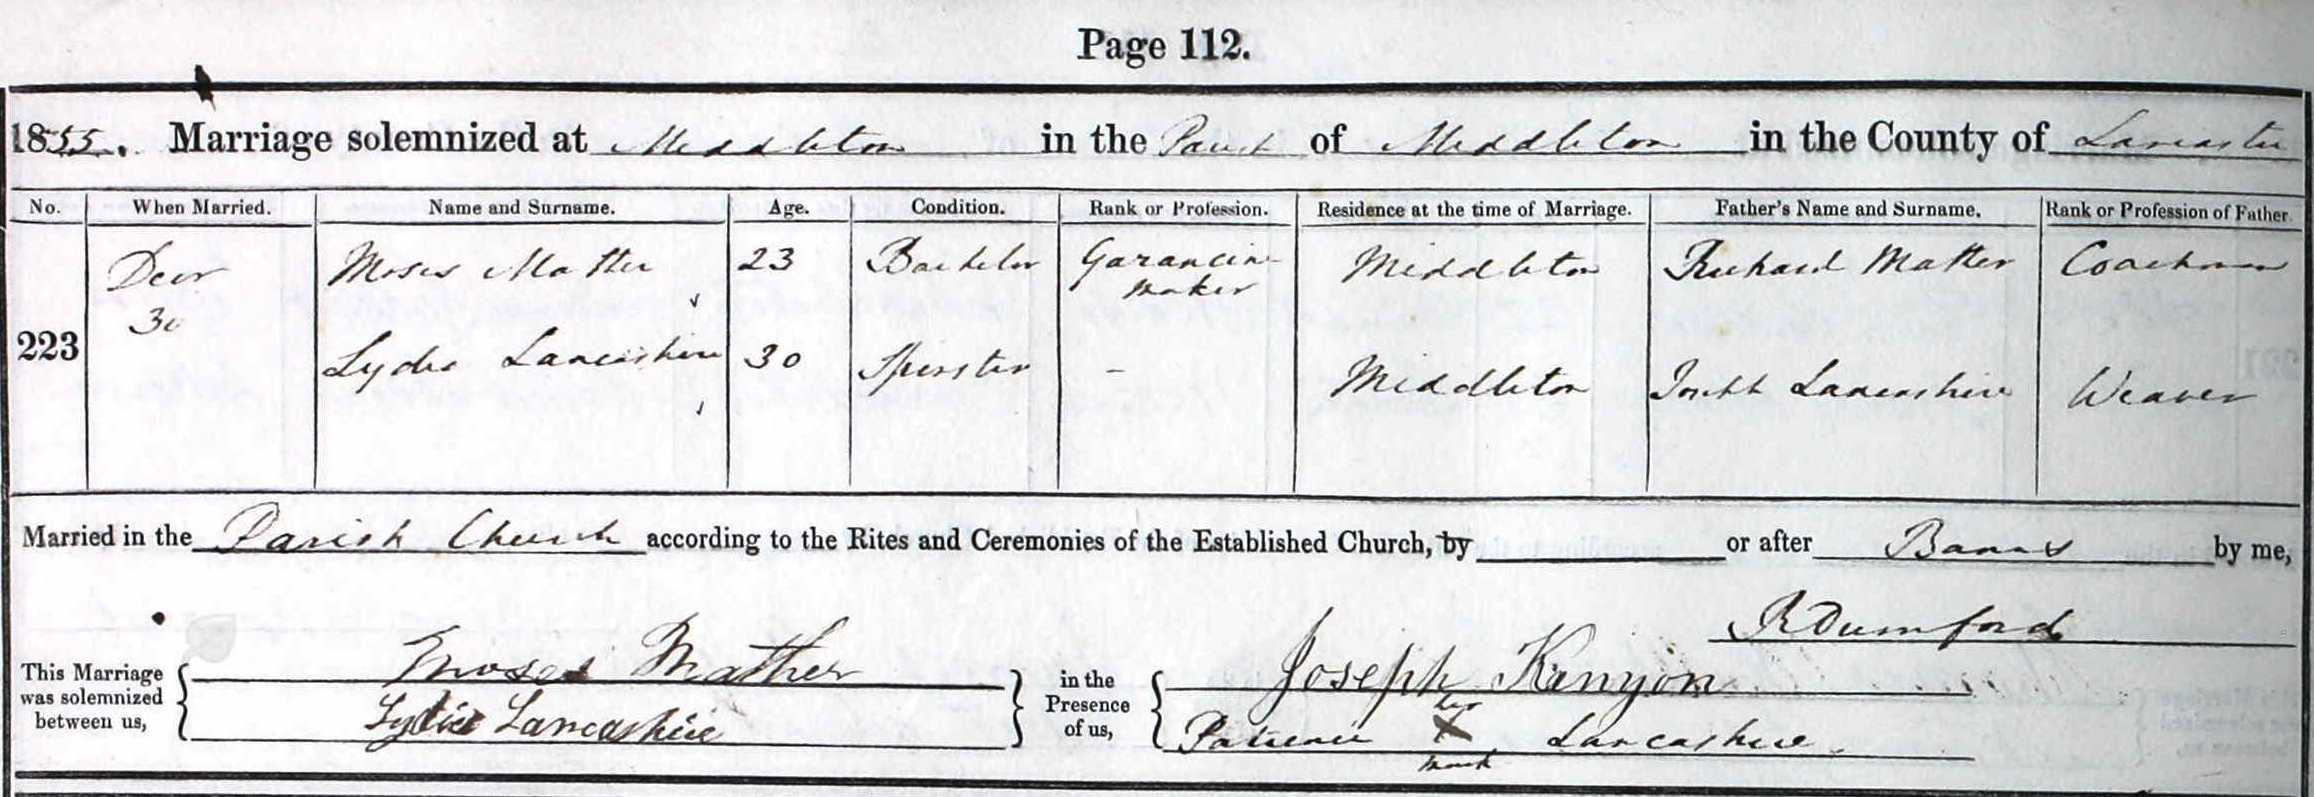 Page 112.
1855. Marriage solemnized at Middleton in the Parish of Middleton in the County of Lancaster
No. When Married. Name and Surname. Age. Condition. Rank or Profession. Residence at the time of Marriage. Father's Name and Surname. Rank or Profession of Father
Decr Moses Mather 23 Bachelor Garancine Middleton Richard Mather Coachman
maker
30
223 Lydia Lancashire 30 Spinster - Middleton Joseph Lancashire Weaver
Married in the Parish Church according to the Rites and Ceremonies of the Established Church, by or after Banns by me,
R Durnford
This Marriage was solemnized between us,
Moses Mather
Lydia Lancashire
in the Presence of us,
Joseph Kenyon
her
Patience X Lancashire.
mark